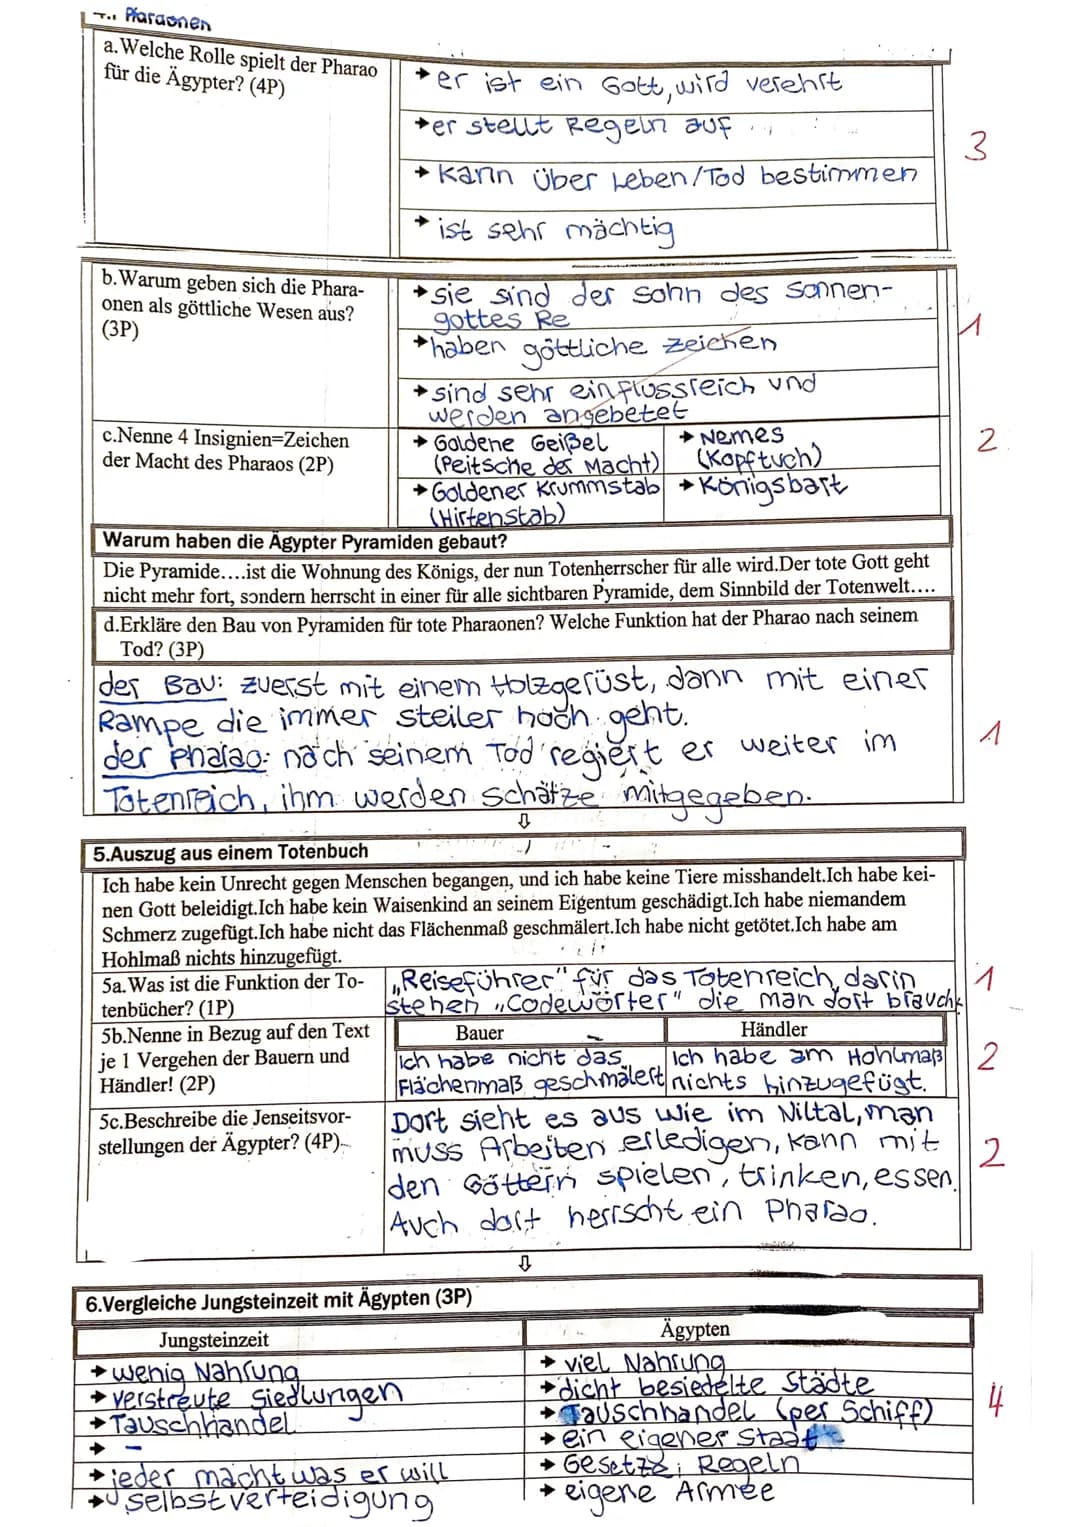 4.1 Pharaonen
a.Welche Rolle spielt der Pharao
für die Ägypter? (4P)
→ er ist ein Gott, wird verehrt
→ er stellt Regeln auf
→ kann über Leben/Tod bestimmen
→ ist sehr mächtig
3
b.Warum geben sich die Phara-
onen als göttliche Wesen aus?
(3P)
→ sie sind der Sohn des Sonnen-
gottes Re
→ haben göttliche Zeichen
→ sind sehr einflussreich und
werden angebetet
1
c.Nenne 4 Insignien=Zeichen
der Macht des Pharaos (2P)
→ Goldene Geißel
(Peitsche der Macht)
→ Goldener Krummstab
(Hirtenstab)
→ Nemes
(Kopftuch)
→ Königsbart
2
Warum haben die Ägypter Pyramiden gebaut?
Die Pyramide....ist die Wohnung des Königs, der nun Totenherrscher für alle wird.Der tote Gott geht
nicht mehr fort, sondern herrscht in einer für alle sichtbaren Pyramide, dem Sinnbild der Totenwelt....
d.Erkläre den Bau von Pyramiden für tote Pharaonen? Welche Funktion hat der Pharao nach seinem
Tod? (3P)
der Bau: zuerst mit einem Holzgerüst, dann mit einer
Rampe die immer steiler hoch geht.
der Pharao: nach seinem Tod regiert er weiter im
Totenreich, ihm werden Schätze mitgegeben.
1
⇩
5.Auszug aus einem Totenbuch
Ich habe kein Unrecht gegen Menschen begangen, und ich habe keine Tiere misshandelt.Ich habe kei-
nen Gott beleidigt.Ich habe kein Waisenkind an seinem Eigentum geschädigt.Ich habe niemandem
Schmerz zugefügt.Ich habe nicht das Flächenmaß geschmälert.Ich habe nicht getötet.Ich habe am
Hohlmaß nichts hinzugefügt.
5a.Was ist die Funktion der To-
tenbücher? (1P)
„Reiseführer" für das Totenreich, darin
stehen „Codewörter" die man dort braucht
1
5b.Nenne in Bezug auf den Text
je 1 Vergehen der Bauern und
Händler! (2P)
Bauer
Ich habe nicht das
Flächenmaß geschmälert
Händler
Ich habe am Hohlmaß
nichts hinzugefügt.
2
5c.Beschreibe die Jenseitsvor-
stellungen der Ägypter? (4P)
Dort sieht es aus wie im Niltal, man
muss Arbeiten erledigen, kann mit
den Göttern spielen, trinken, essen.
Auch dort herrscht ein Pharao.
2
⇩
6.Vergleiche Jungsteinzeit mit Ägypten (3P)
Jungsteinzeit
→ wenig Nahrung
→ verstreute Siedlungen
→ Tauschhandel
→ -
→ jeder macht was er will
→ Selbstverteidigung
Ägypten
→ viel Nahrung
→ dicht besiedelte Städte
→ Tauschhandel (per Schiff)
→ ein eigener Staat
→ Gesetze, Regeln
→ eigene Armee
4